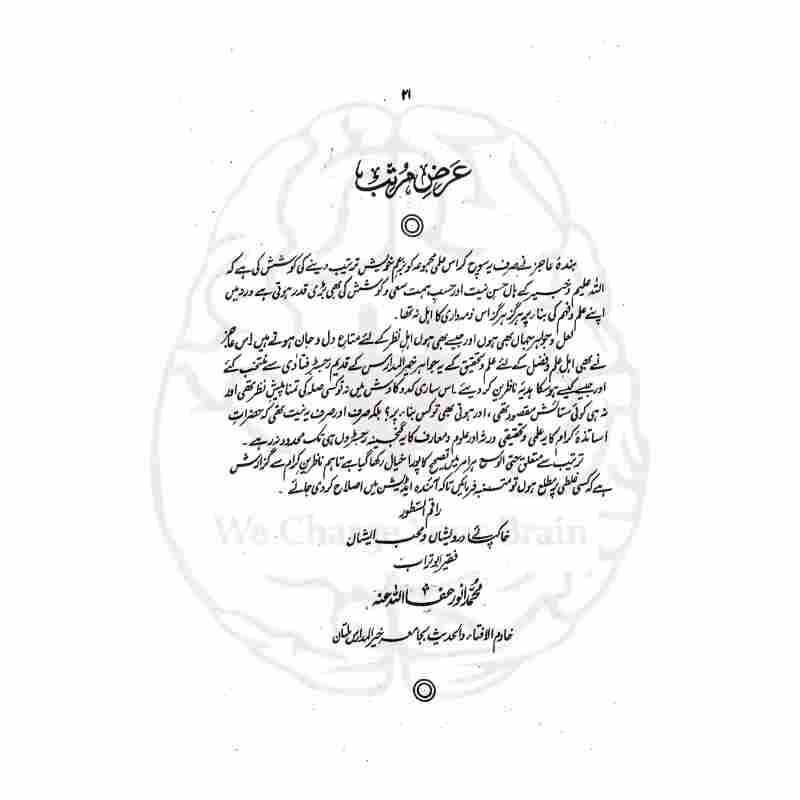 ۲۱
عَرضِ مُرتِّب
بندۂ عاجز نے صرف یہ سوچ کر اس علمی مجموعہ کو بزعمِ خویش ترتیب دینے کی کوشش کی ہے کہ
اللہ علیم و خبیر کے ہاں حسنِ نیت اور حسبِ ہمت سعی و کوشش کی بھی بڑی قدر ہوتی ہے ورنہ میں
اپنے علم و فہم کی بناء پر ہرگز ہرگز اس ذمہ داری کا اہل نہ تھا ۔
لعل و جواہر جہاں بھی ہوں اور جیسے بھی ہوں اہلِ نظر کے لئے متاعِ دل و جان ہوتے ہیں اس عاجز
نے بھی اہلِ علم و فضل کے لئے علم و تحقیق کے یہ جواہر خیر المدارس کے قدیم رجسٹر فتاویٰ سے منتخب کئے
اور جیسے کیسے ہو سکا ہدیۂ ناظرین کر دیئے ۔ اس ساری کدو کاوش میں نہ تو کسی صلہ کی تمنا پیشِ نظر تھی اور
نہ ہی کوئی ستائش مقصود تھی ، اور ہوتی بھی تو کس بناء پر ؟ بلکہ صرف اور صرف یہ نیت تھی کہ حضراتِ
اساتذۂ کرام کا یہ علمی و تحقیقی ورثہ اور علوم و معارف کا یہ گنجینہ رجسٹروں ہی تک محدود نہ رہے ۔
ترتیب سے متعلق حتی الوسع ہر امر میں تصحیح کا پورا خیال رکھا گیا ہے تاہم ناظرین کرام سے گزارش
ہے کہ کسی غلطی پر مطلع ہوں تو متنبہ فرمائیں تاکہ آئندہ ایڈیشن میں اصلاح کر دی جائے ۔
راقم السطور
خاکپائے درویشاں و محب ایشاں
فقیر ابو تراب
محمد انور عفا اللہ عنہ
خادم الافتاء والحدیث بجامعہ خیر المدارس ملتان
We Change Your Brain